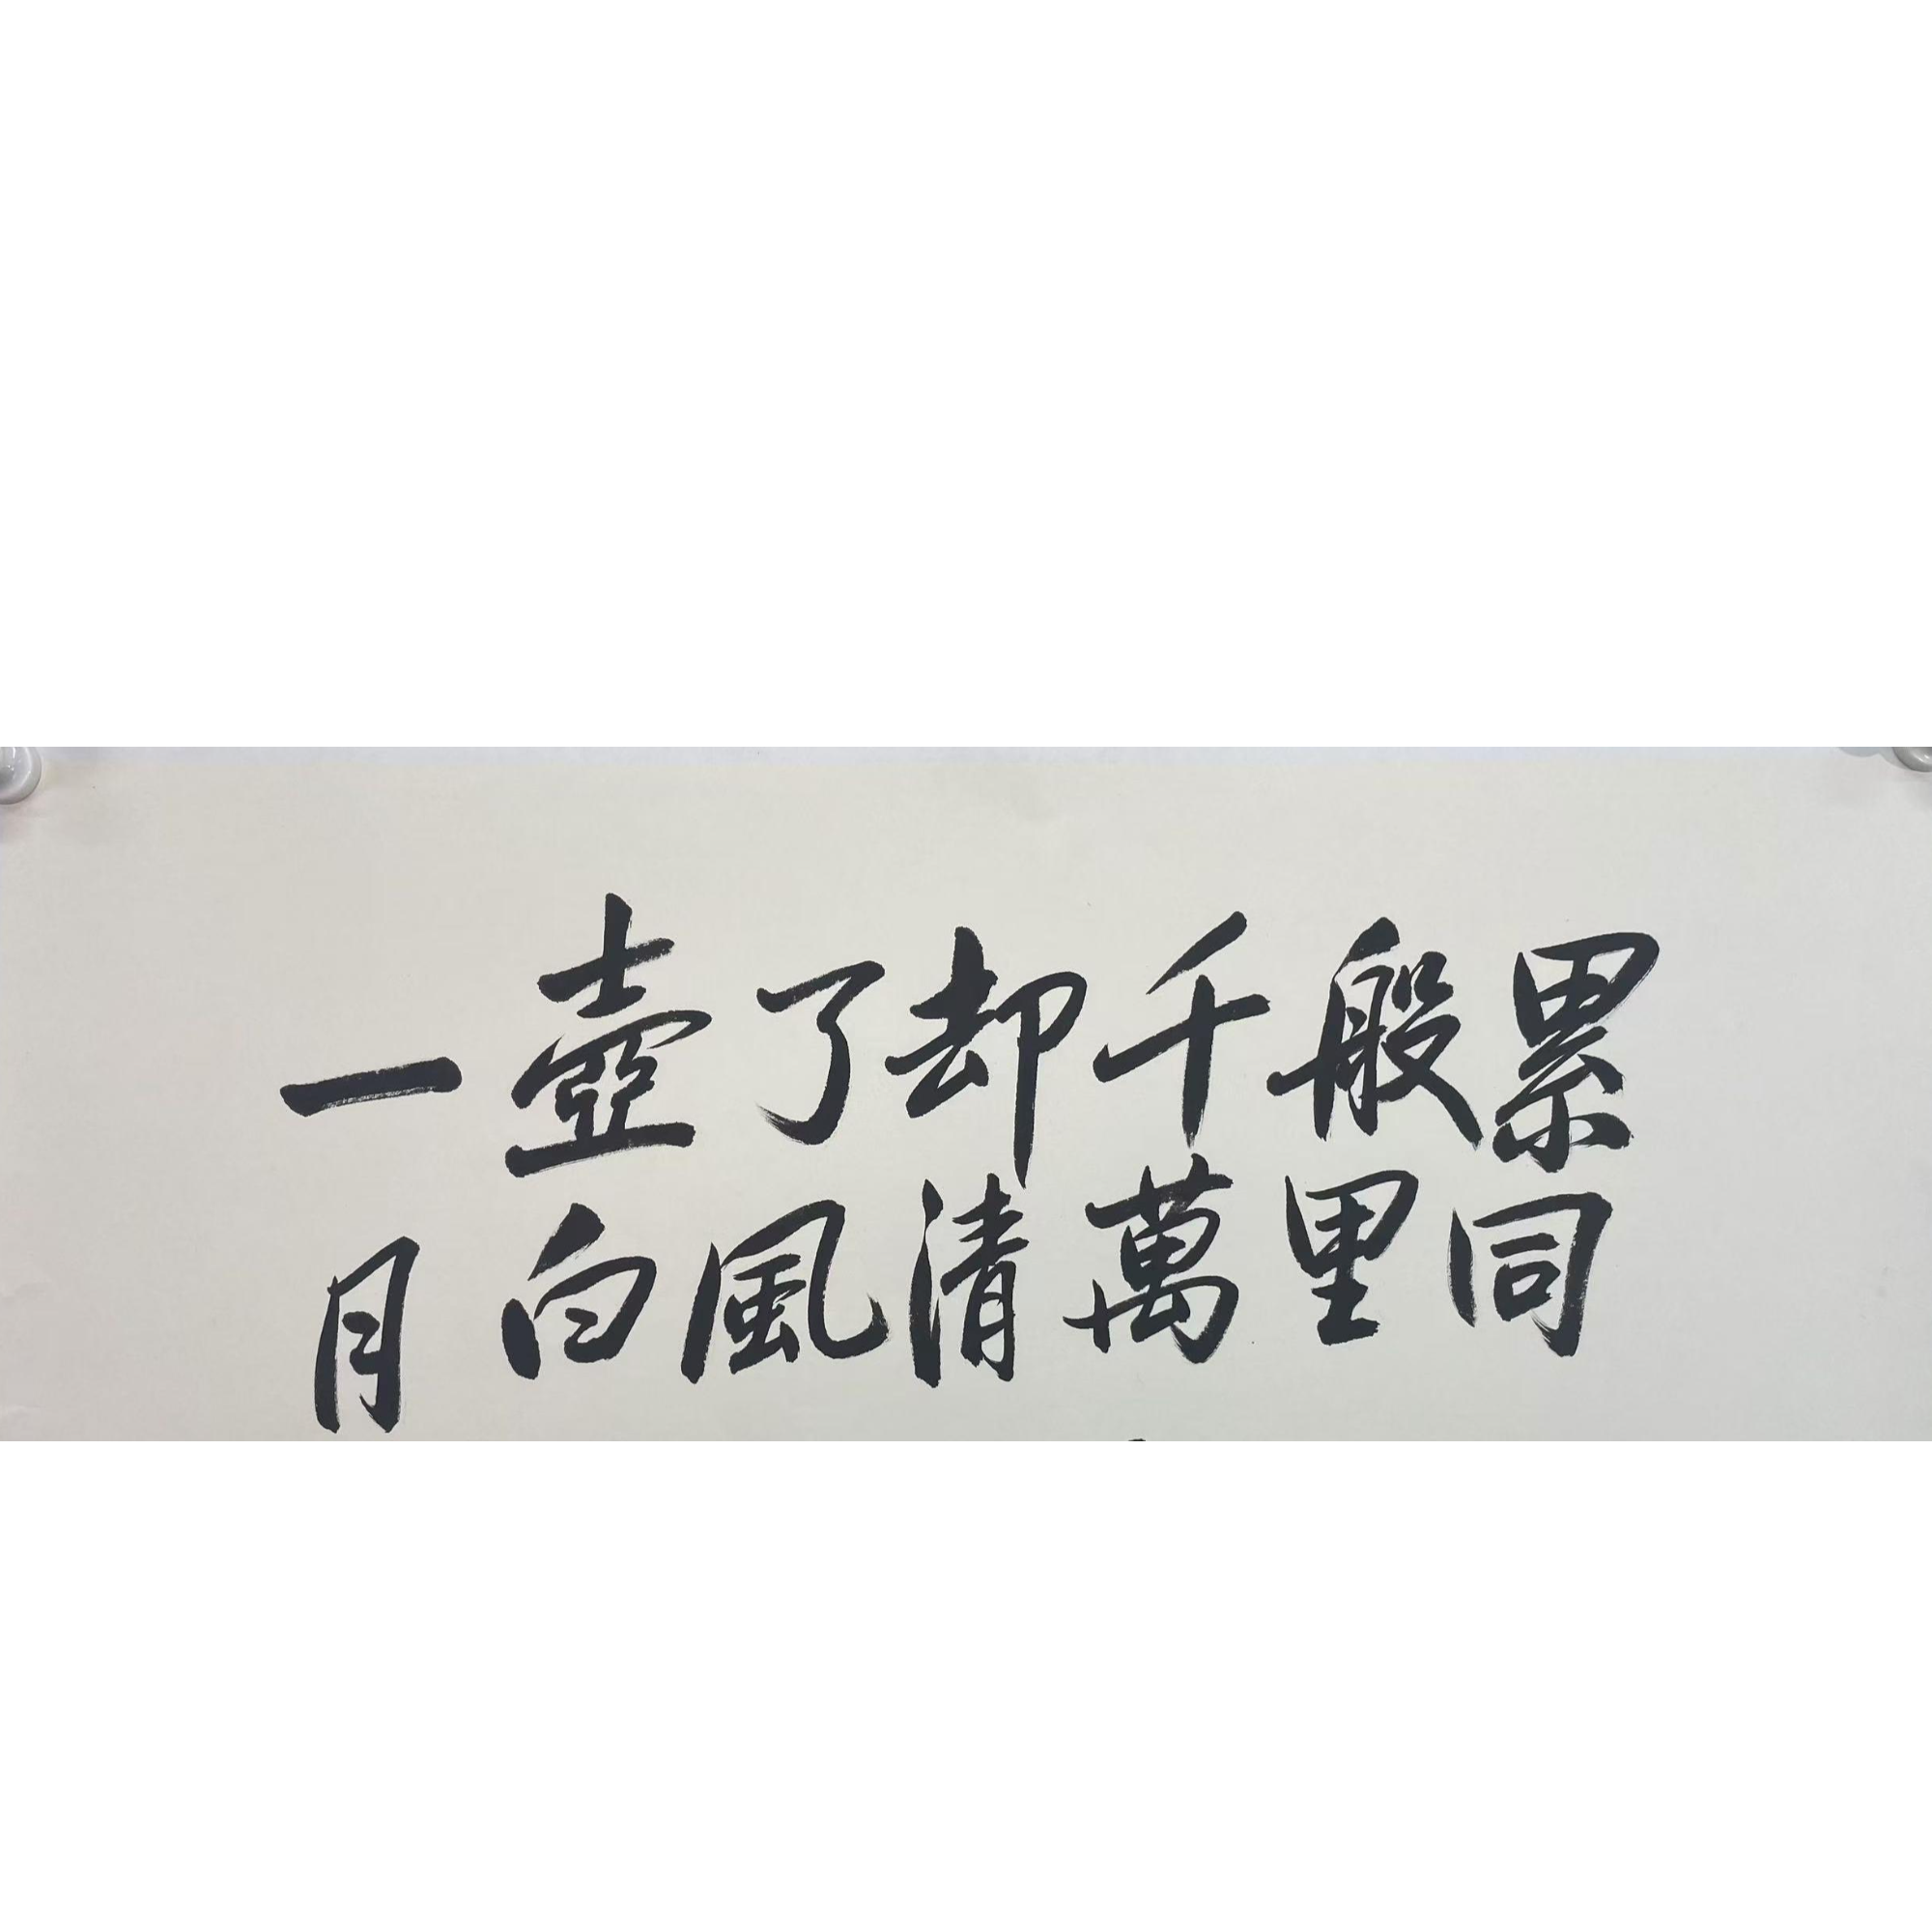 一壺了却千般累
月白風清萬里同